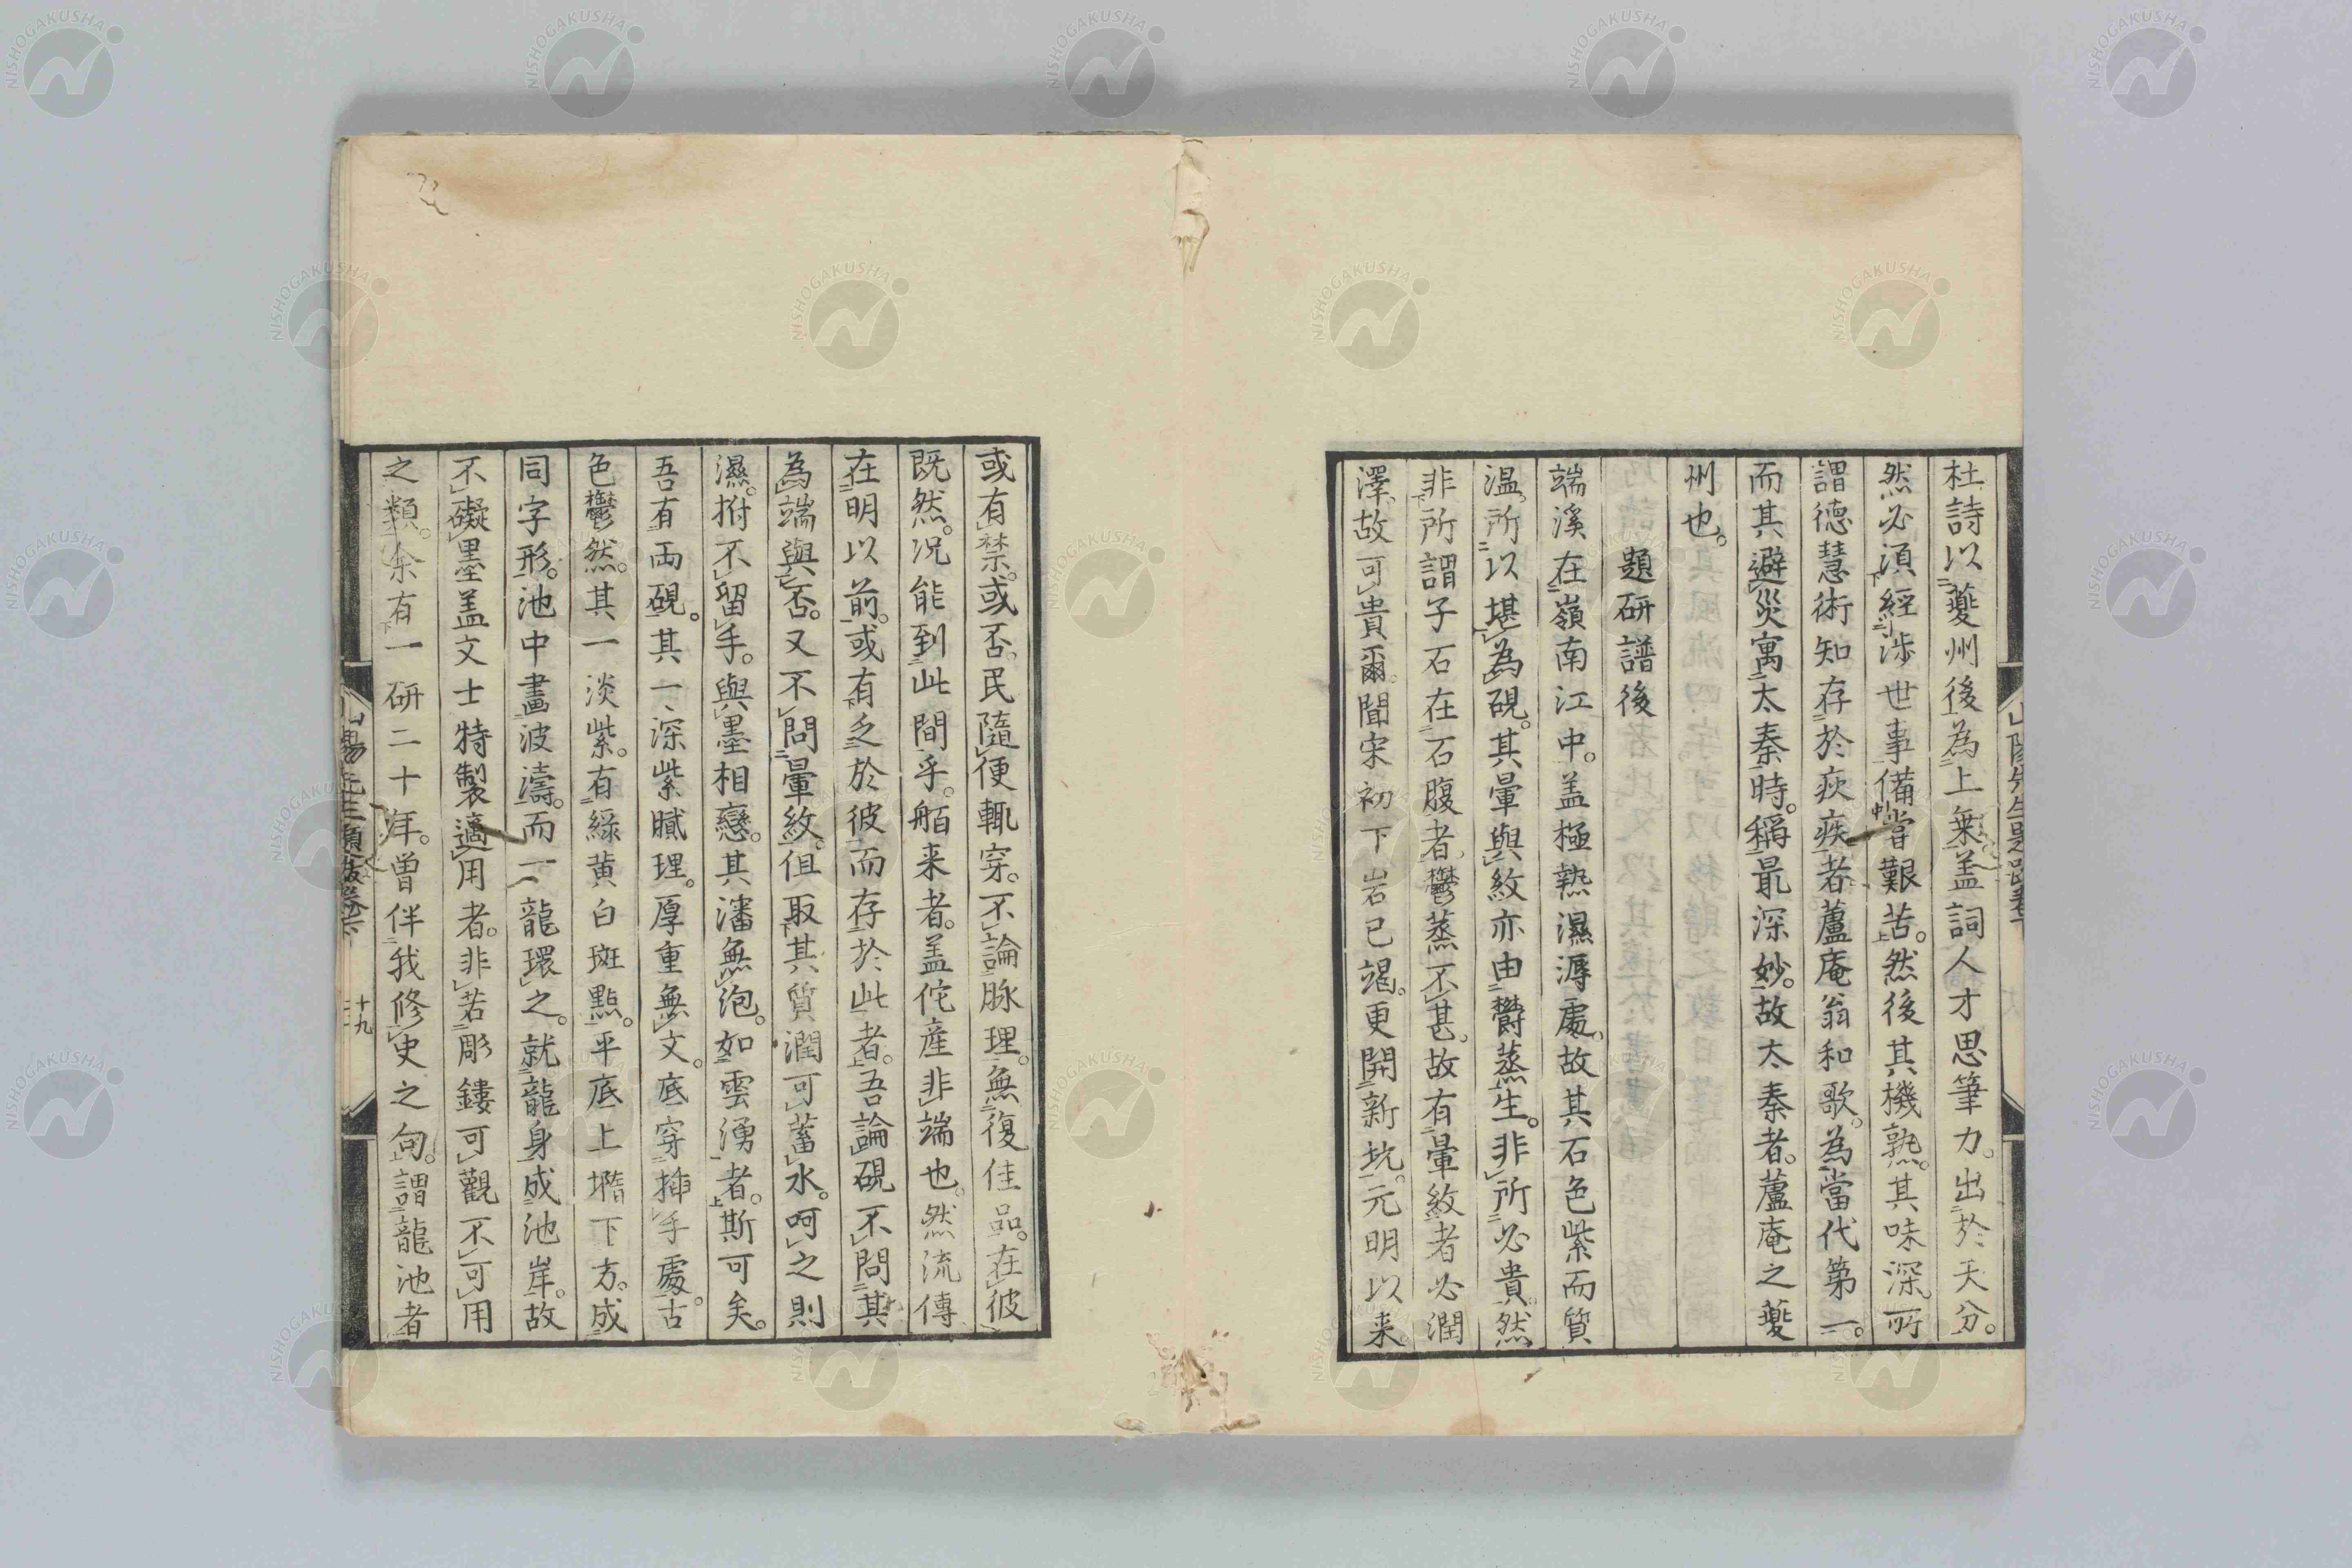 杜詩以夔州後為上乗盖詞人才思筆力。出於天分。
然必須經涉世事備甞艱苦。然後其機熟。其味深所
謂德慧術知存於疢疾者蘆庵翁和歌。為當代第一。
而其避災寓太秦時。稱最深妙。故太秦者。蘆庵之夔
州也。
題研譜後
端溪在嶺南江中。盖極熱濕溽處。故其石色紫而質
温。所以堪為硯。其暈與紋亦由欝蒸生。非所必貴。然
非所謂子石在石腹者。欝蒸不甚。故有暈紋者必潤
澤。故可貴爾。聞宋初下岩已竭。更開新坑。元明以来。
或有禁。或否。民隨便輒穿。不論脉理。無復佳品。在彼
既然。况能到此間乎。舶来者。盖佗産非端也。然流傳
在明以前。或有乏於彼而存於此者。吾論硯不問其
為端與否。又不問暈紋。但取其質潤可蓄水。呵之則
濕。拊不留手。與墨相戀。其瀋無泡。如雲湧者。斯可矣。
吾有両硯。其一深紫膩理。厚重無文。底穿挿手處。古
色欝然。其一淡紫。有緑黄白斑點。平底上墮下方。成
同字形。池中畫波濤。而一龍環之。就龍身成池岸。故
不礙墨盖文士特製適用者。非若彫鏤可觀不可用
之類。余有一研二十年。曽伴我修史之句。謂龍池者
山陽先生題跋卷下
十九